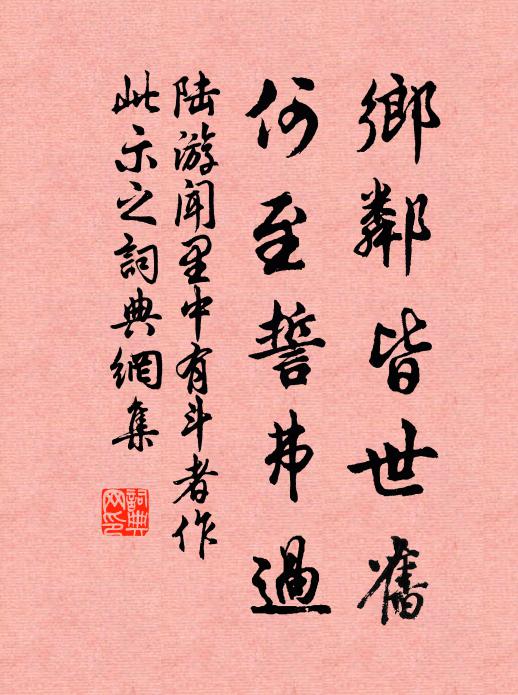 鄉鄰皆世舊
何至誓弗過
陆游闻里中有斗者作
此示之詞典網集
詞典網印